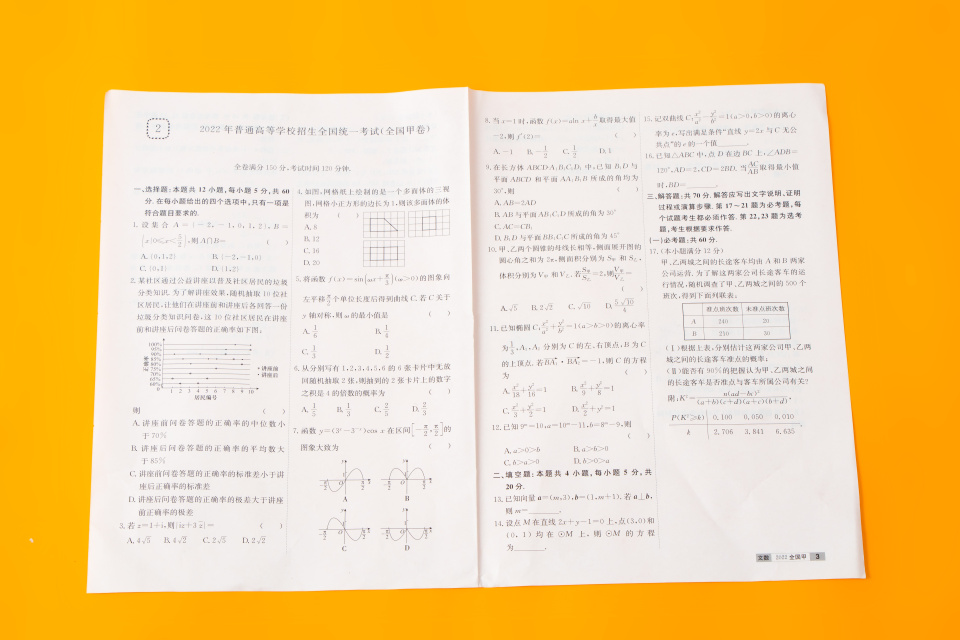 2
2022年普通高等学校招生全国统一考试(全国甲卷)
全卷满分150分,考试时间120分钟.
一、选择题:本题共12小题,每小题5分,共60
分.在每小题给出的四个选项中,只有一项是
符合题目要求的.
1.设集合A={-2,-1,0,1,2},B=
{x|0≤x<5/2},则A∩B= ( )
A.{0,1,2} B.{-2,-1,0}
C.{0,1} D.{1,2}
2.某社区通过公益讲座以普及社区居民的垃圾
分类知识.为了解讲座效果,随机抽取10位社
区居民,让他们在讲座前和讲座后各回答一份
垃圾分类知识问卷,这10位社区居民在讲座
前和讲座后问卷答题的正确率如下图:
100%
95%
90%
85%
80%
75%
70%
65%
60%
0 1 2 3 4 5 6 7 8 9 10
正确率
居民编号
* 讲座前
• 讲座后
则 ( )
A.讲座前问卷答题的正确率的中位数小
于70%
B.讲座后问卷答题的正确率的平均数大
于85%
C.讲座前问卷答题的正确率的标准差小于讲
座后正确率的标准差
D.讲座后问卷答题的正确率的极差大于讲座
前正确率的极差
3.若z=1+i,则|iz+3z̄|= ( )
A.4√5 B.4√2 C.2√5 D.2√2
4.如图,网格纸上绘制的是一个多面体的三视
图,网格小正方形的边长为1,则该多面体的体
积为 ( )
A.8
B.12
C.16
D.20
5.将函数f(x)=sin(ωx+π/3)(ω>0)的图象向
左平移π/2个单位长度后得到曲线C.若C关于
y轴对称,则ω的最小值是 ( )
A.1/6 B.1/4
C.1/3 D.1/2
6.从分别写有1,2,3,4,5,6的6张卡片中无放
回随机抽取2张,则抽到的2张卡片上的数字
之积是4的倍数的概率为 ( )
A.1/5 B.1/3 C.2/5 D.2/3
7.函数y=(3ˣ-3⁻ˣ)cos x在区间[-π/2,π/2]的
图象大致为 ( )
A B
C D
8.当x=1时,函数f(x)=aln x+b/x取得最大值
-2,则f′(2)= ( )
A.-1 B.-1/2 C.1/2 D.1
9.在长方体ABCD-A₁B₁C₁D₁中,已知B₁D与
平面ABCD和平面AA₁B₁B所成的角均为
30°,则 ( )
A.AB=2AD
B.AB与平面AB₁C₁D所成的角为30°
C.AC=CB₁
D.B₁D与平面BB₁C₁C所成的角为45°
10.甲、乙两个圆锥的母线长相等,侧面展开图的
圆心角之和为2π,侧面积分别为S甲和S乙,
体积分别为V甲和V乙.若S甲/S乙=2,则V甲/V乙=
( )
A.√5 B.2√2 C.√10 D.5√10/4
11.已知椭圆C:x²/a²+y²/b²=1(a>b>0)的离心率
为1/3,A₁,A₂分别为C的左、右顶点,B为C
的上顶点.若BA₁·BA₂=-1,则C的方程
为 ( )
A.x²/18+y²/16=1 B.x²/9+y²/8=1
C.x²/3+y²/2=1 D.x²/2+y²=1
12.已知9ᵐ=10,a=10ᵐ-11,b=8ᵐ-9,则
( )
A.a>0>b B.a>b>0
C.b>a>0 D.b>0>a
二、填空题:本题共4小题,每小题5分,共
20分.
13.已知向量a=(m,3),b=(1,m+1).若a⊥b,
则m=________.
14.设点M在直线2x+y-1=0上,点(3,0)和
(0,1)均在⊙M上,则⊙M的方程
为________.
15.记双曲线C:x²/a²-y²/b²=1(a>0,b>0)的离心
率为e,写出满足条件“直线y=2x与C无公
共点”的e的一个值________.
16.已知△ABC中,点D在边BC上,∠ADB=
120°,AD=2,CD=2BD.当AC/AB取得最小值
时,BD=________.
三、解答题:共70分.解答应写出文字说明、证明
过程或演算步骤.第17~21题为必考题,每
个试题考生都必须作答.第22、23题为选考
题,考生根据要求作答.
(一)必考题:共60分.
17.(本小题满分12分)
甲、乙两城之间的长途客车均由A和B两家
公司运营.为了解这两家公司长途客车的运
行情况,随机调查了甲、乙两城之间的500个
班次,得到下面列联表:
准点班次数 未准点班次数
A 240 20
B 210 30
(Ⅰ)根据上表,分别估计这两家公司甲、乙两
城之间的长途客车准点的概率;
(Ⅱ)能否有90%的把握认为甲、乙两城之间
的长途客车是否准点与客车所属公司有关?
附:K²=n(ad-bc)²/((a+b)(c+d)(a+c)(b+d)).
P(K²≥k) 0.100 0.050 0.010
k 2.706 3.841 6.635
文数 2022 全国甲 3